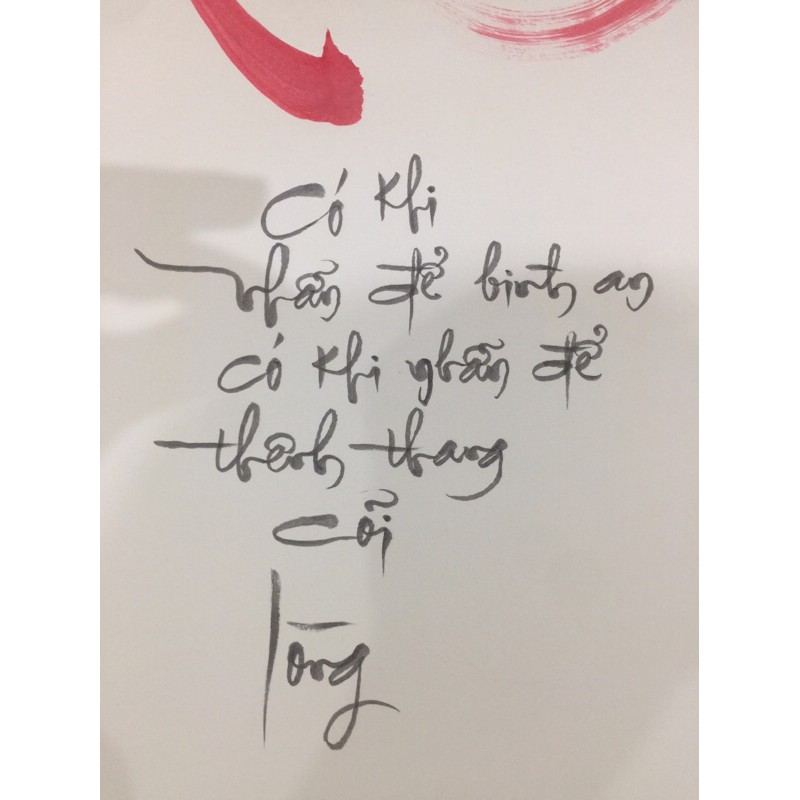 Có khi
nhẫn để bình an
có khi nhẫn để
thênh thang
cõi
lòng